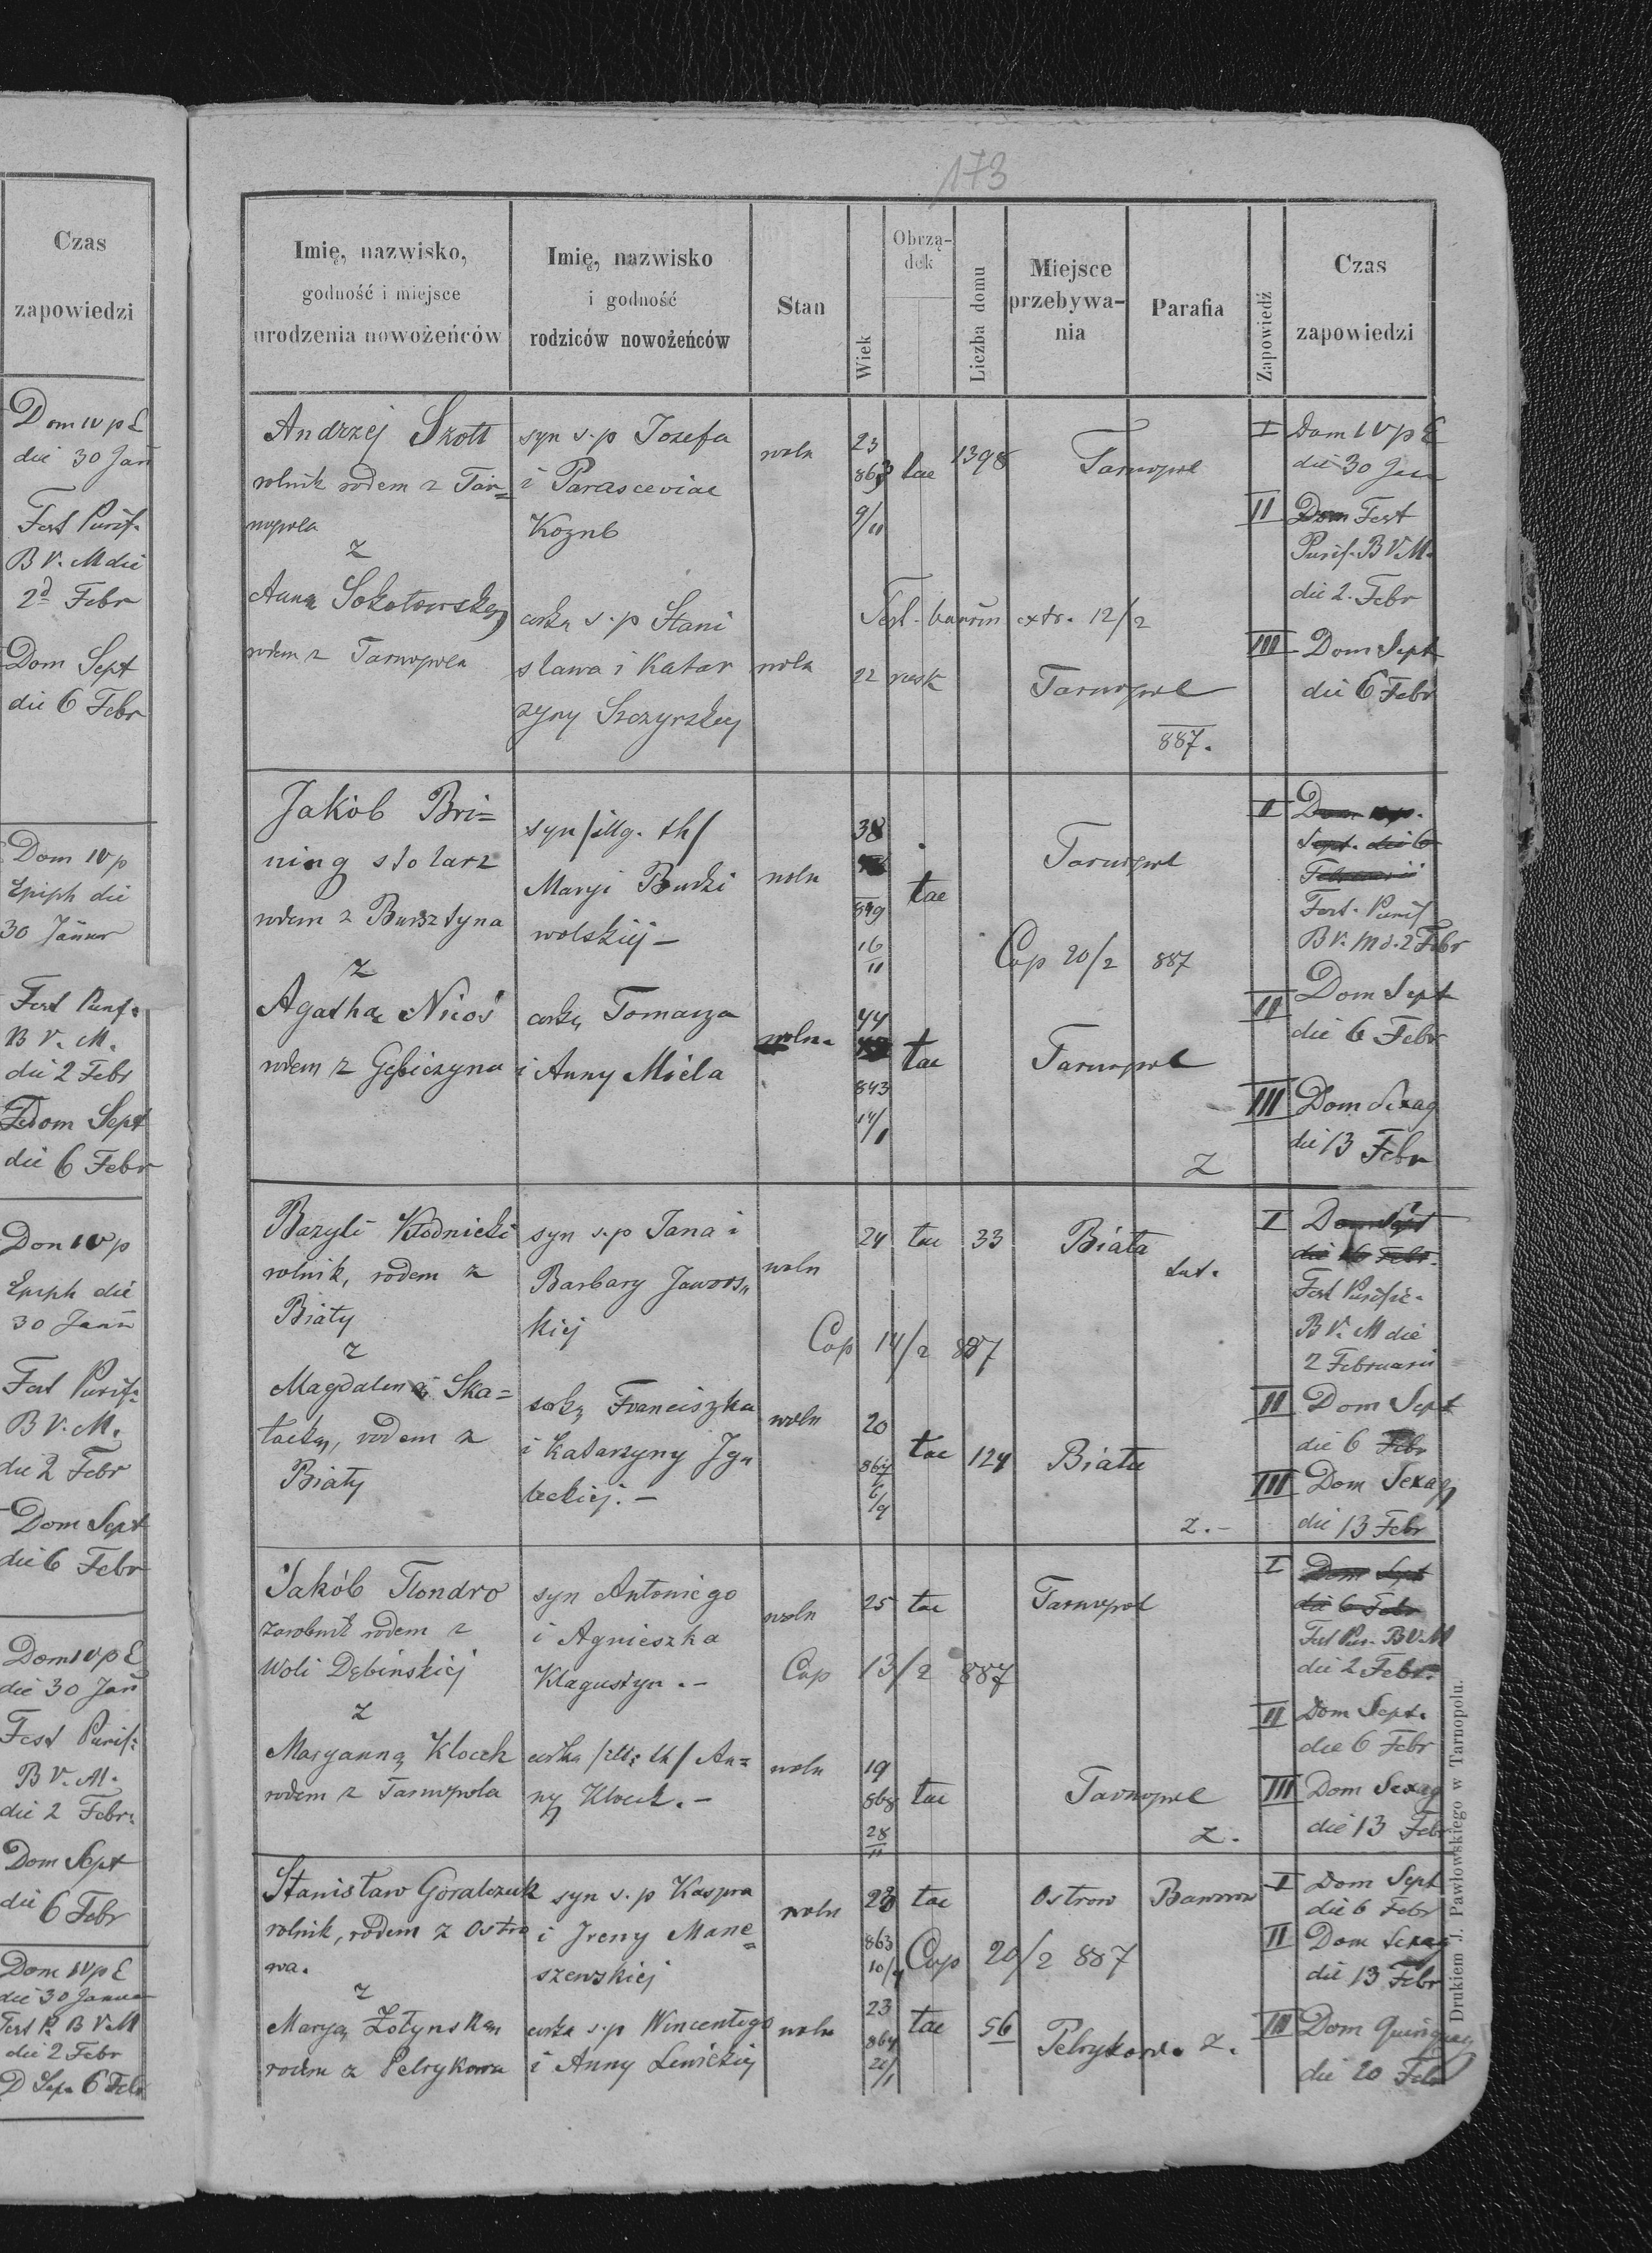 Czas
zapowiedzi
Dom IV p E
die 30 Jan
Fest Purif.
B V. M die
2d Febr
Dom Sept
die 6 Febr
Dom IV p
Epiph die
30 Januar
Fest Purif.
B V. M.
die 2 Febr
Dom Sept
die 6 Febr
Dom IV p
Epiph die
30 Jann
Fest Purif.
B V. M.
die 2 Febr
Dom Sept
die 6 Febr
Dom IV p E
die 30 Jan
Fest Purif.
B V. M.
die 2 Febr.
Dom Sept
die 6 Febr
Dom IV p E
die 30 Januar
Fest P. B V M
die 2 Febr
D Sep. 6 Febr
173
Imię, nazwisko,
godność i miejsce
urodzenia nowożeńców
Imię, nazwisko
i godność
rodziców nowożeńców
Stan
Wiek
Obrzą-
dek
Liczba domu
Miejsce
przebywa-
nia
Parafia
Zapowiedź
Czas
zapowiedzi
Andrzej Szott
rolnik rodem z Tar=
nopola
z
Anną Sokołowską
rodem z Tarnopola
syn s.p Jozefa
i Parasceviae
Kozub
corką s.p Stani
slawa i Katar
zyny Szczyrskiej
woln
23
863
9/11
lac
1398
Tarnopol
Test. bannor extr. 12/2
woln
22
rusk
Tarnopol
887.
I Dom IV p E
die 30 Jan
II Fest
Purif. B V. M.
die 2. Febr
III Dom Sept
die 6 Febr
Jakób Bri=
ning stolarz
rodem z Bursztyna
z
Agathą Nicoś
rodem z Gębiczyna
syn /illg. th/
Maryi Budzi
wolskiej -
corką Tomasza
i Anny Miela
woln
38
849
16
11
lac
Tarnopol
Cop 20/2 887
woln.
44
843
14/1
lac
Tarnopol
z
I
Fest. Purif
B V. M d. 2 Febr
II Dom Sept
die 6 Febr
III Dom Sexag
die 13 Febr
Bazyli Kłodnicki
rolnik, rodem z
Biały
z
Magdaleną Ska=
łacką, rodem z
Biały
syn s.p Jana i
Barbary Jawors=
kiej
corką Franciszka
i Katarzyny Igna
teckiej. -
woln
24
lac
33
Biała
tut.
Cop 14/2 887
woln
20
864
6/9
lac
124
Biała
z. -
I Dom Sept
die 6 Febr.
Fest Purific.
B V. M die
2 Februarii
II Dom Sept
die 6 Febr
III Dom Sexag
die 13 Febr
Jakób Flondro
zarobnik rodem z
Woli Dębinskiej
z
Maryanną Klocek
rodem z Tarnopola
syn Antoniego
i Agnieszka
Klagustyn. -
corka /ill: th/ An=
ny Klocek. -
woln
25
lac
Tarnopol
Cop 13/2 887
woln
19
868
28
11
lac
Tarnopol
z.
I Dom Sept
die 6 Febr
Fest Pur. B V. M
die 2 Febr.
II Dom Sept.
die 6 Febr
III Dom Sexag
die 13 Febr
Stanisław Góralczuk
rolnik, rodem z Ostro
wa.
z
Maryą Żołynską
rodem z Petrykowa
syn s.p Kaspra
i Ireny Mane=
szewskiej
corka s.p Wincentego
i Anny Lewickiej
woln
23
863
10/4
lac
Ostrow
Baworow
Cop 20/2 887
woln
23
864
21/1
lac
56
Petrykow. z.
I Dom Sept
die 6 Febr
II Dom Sexag
die 13 Febr
III Dom Quinquag
die 20 Febr
Drukiem J. Pawłowskiego w Tarnopolu.